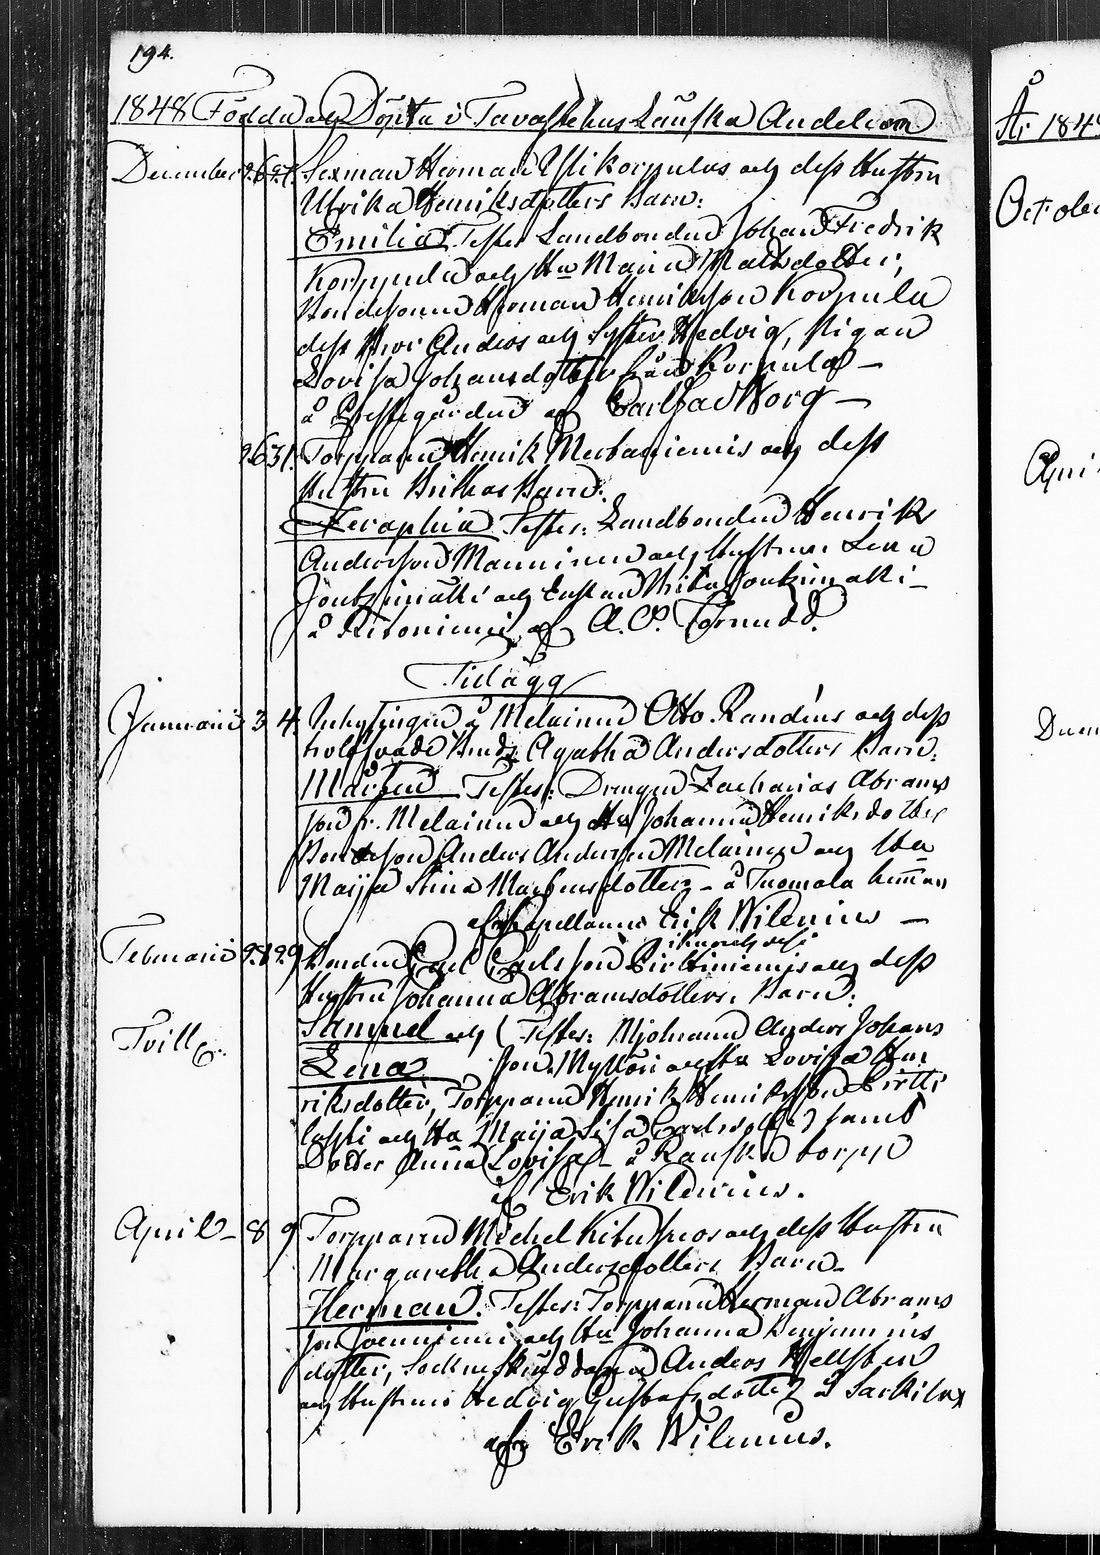 194.
1848 Födda och Döpta i Tavastehus Läuska Andelen
December 26. 27. Sexman Herman Yli Korpulas och dess Hustru
Ulrika Henriksdotters Barn:
Emilia. Testes Landbonden Johan Fredrik
Korppula och Hu Maria Mattsdotter,
Bondesonen Herman Henriksson Korpula
dess Bror Anders och Syster Hedvig, Pigan
Lovisa Johansdotter från Korpula —
å Prestegården af Carl Warg —
26. 31. Torpparen Henrik Merbaniemis och dess
Hustru Brithas Barn:
Seraphia. Testes: Landbonden Henrik
Andersson Manninen och Hustrun Lena
och Enkan Brita
å af A. O. Törnudd.
Tillägg
Januarii 3 4. Inhysingen å Melainen Otto Randéns och dess
Agatha Andersdotters Barn:
Mårten. Testes: Drengen Zacharias Abrams
son fr. Melainen och Hu Johanna Henriksdotter
Bondeson Anders Andersson Melainen och Hu
Maija Stina Markusdotter – å Tuomala heman
af Capellanen Erik Wilenius —
Februarii 28. 29 Bonden Carl Carlsson Pirttiniemis och dess
Hustru Johanna Abramsdotters Barn:
Samuel och Testes: Mjölnaren Anders Johans
Tvill.
Lena son Myllari och Hu Lovisa Hen
riksdotter, Torpparen Henrik Henriksson Pirtti
lahti och Hu Maija Lisa Carlsdotter samt
Dotter Anna Lovisa – å Rauska torpp
af Erik Wilenius.
April – 8 9 Torpparen Michel och dess Hustru
Margaretha Andersdotters Barn –
Herman. Testes: Torpparen Herman Abrams
son och Hu Johanna Benjamins
dotter, Sockneskräddaren Anders Hellsten
och Hustrun Hedvig Gustafsdotter å Sarkila
af Erik Wilenius.
År 184
Octobe
Apri
Decem